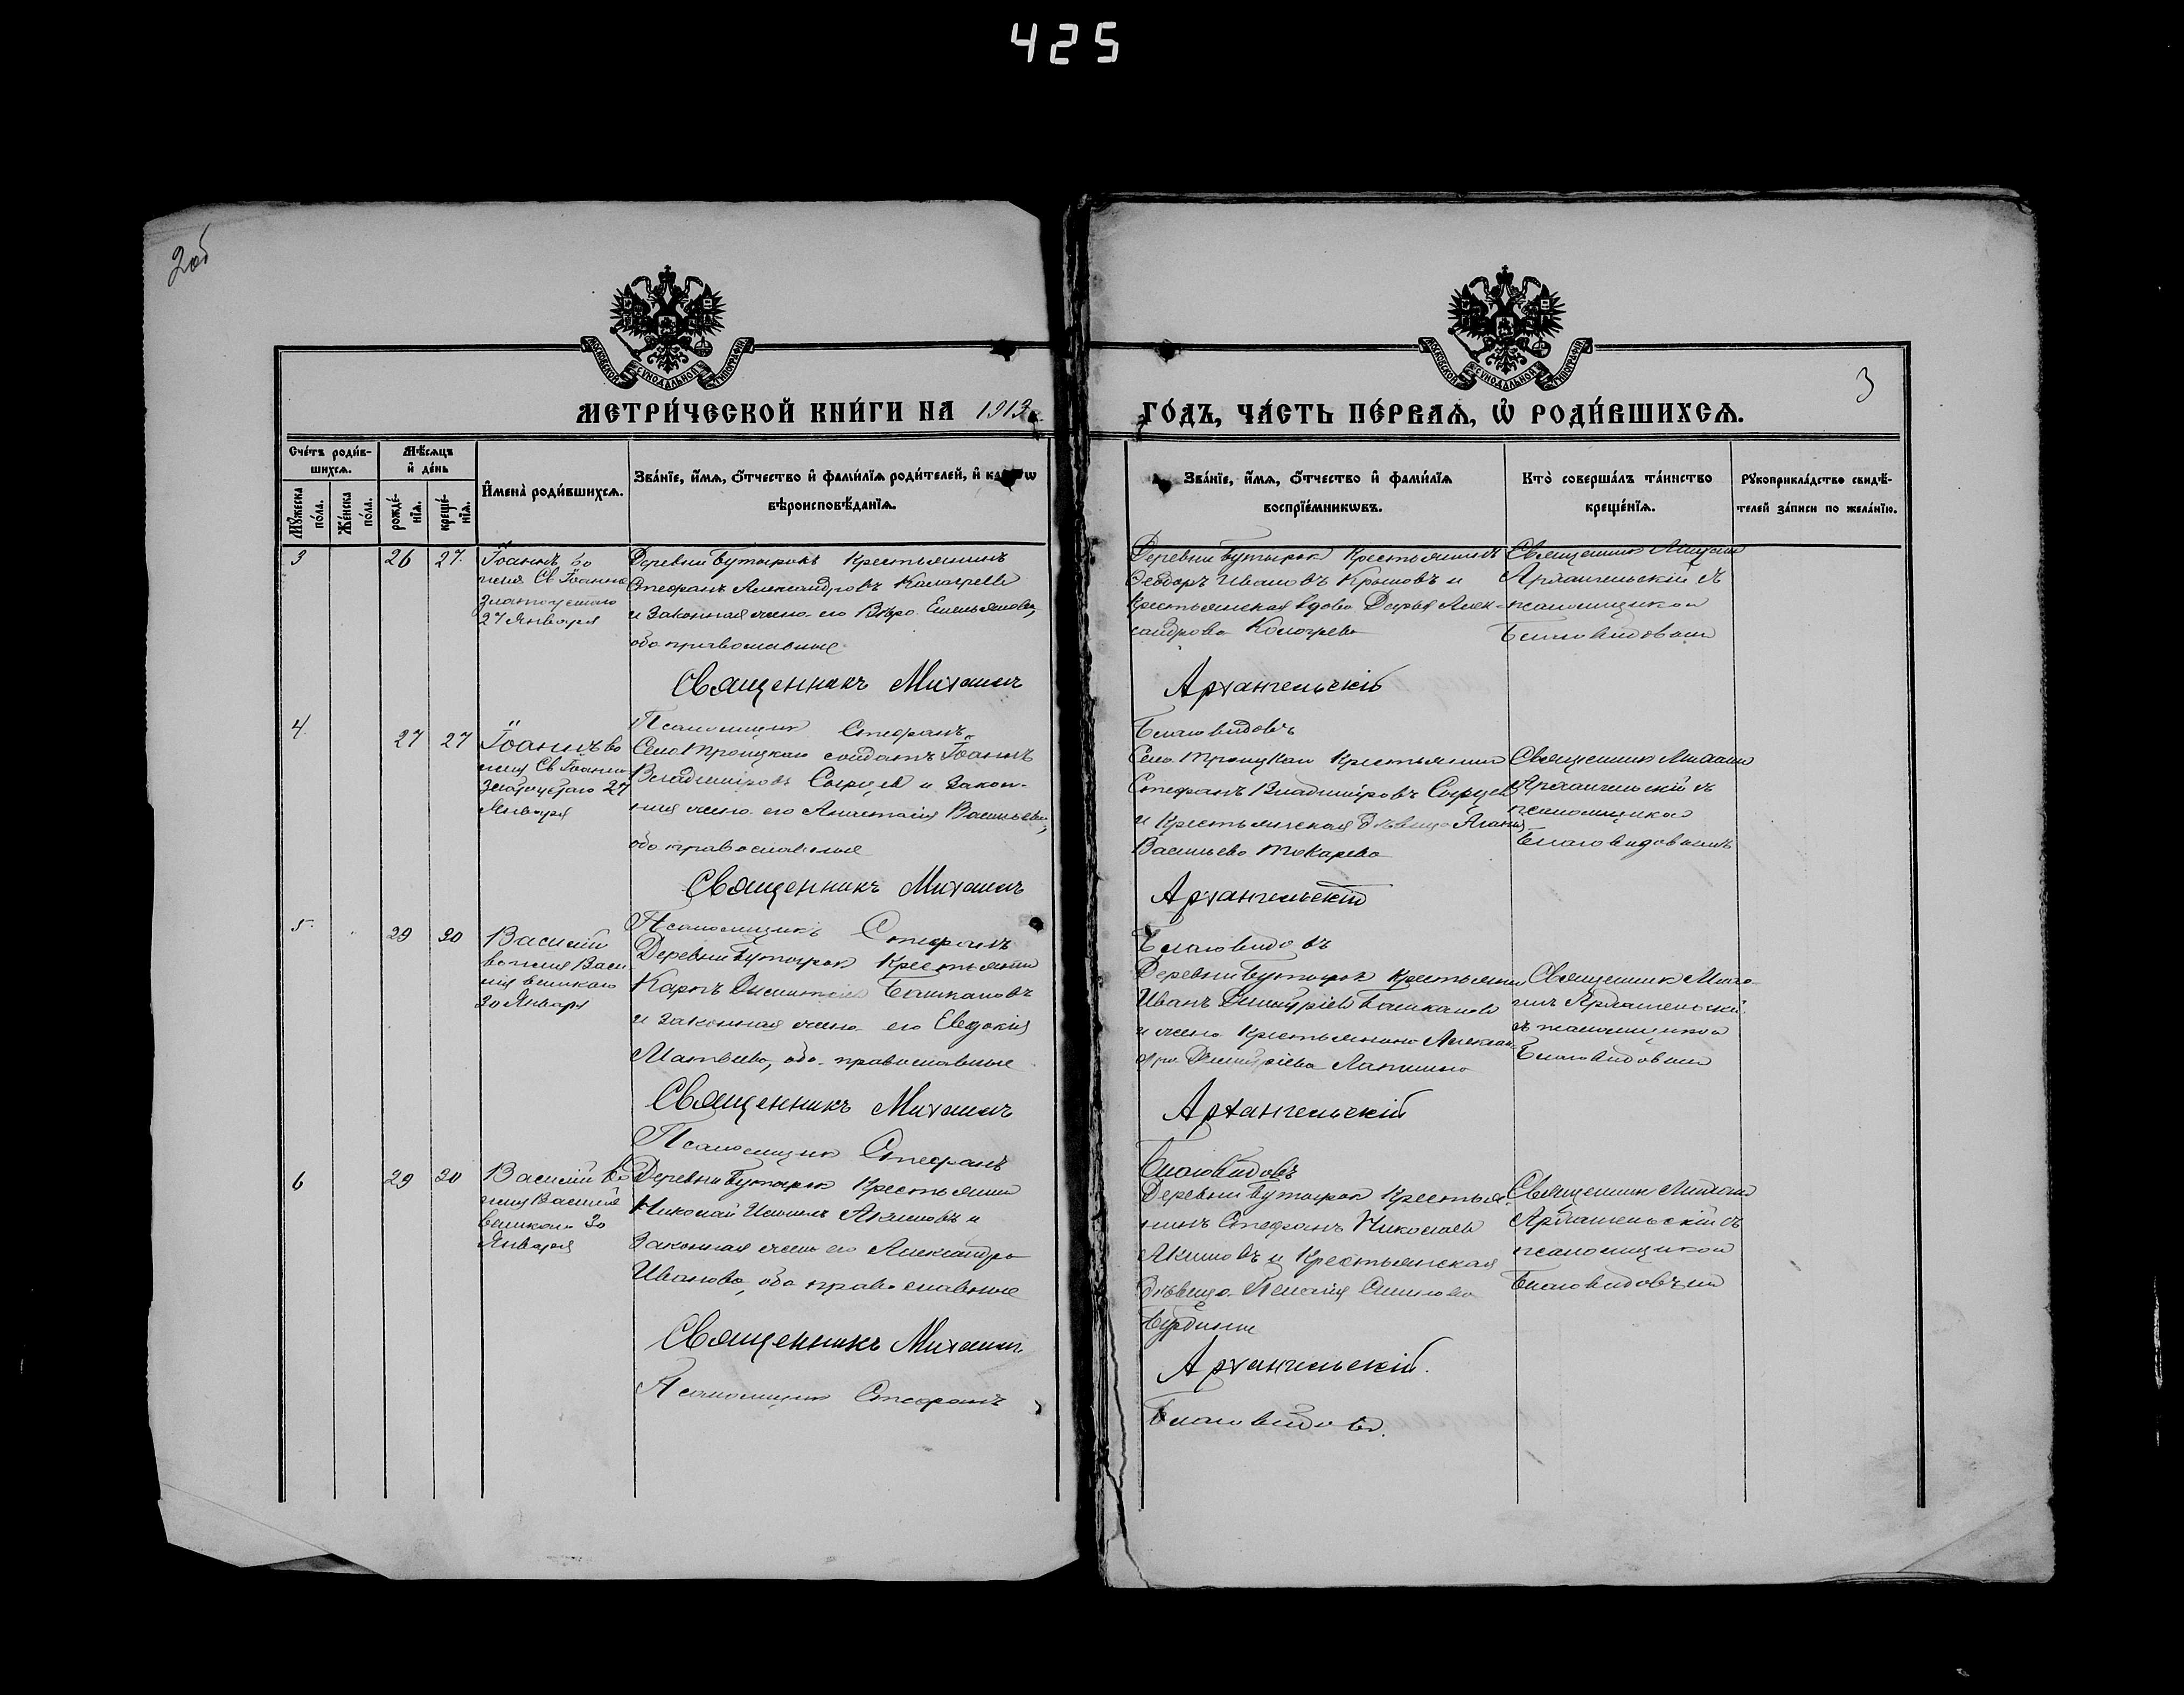 425
2об
3
МОСКОВСКОЙ СѴНОДАЛЬНОЙ ТИПОГРАФІИ
МОСКОВСКОЙ СѴНОДАЛЬНОЙ ТИПОГРАФІИ
МЕТРИ́ЧЕСКОЙ КНИ́ГИ НА 1913
ГО́ДЪ, ЧА́СТЬ ПЕ́РВАѦ, Ѡ҆ РОДИ́ВШИХСѦ.
Сче́тъ роди́в-
шихсѧ.
Мꙋ́жеска по́ла.
Же́нска по́ла.
Мѣ́сѧцъ
и҆ де́нь
рожде́-
нїѧ.
креще́-
нїѧ.
И҆мена̀ роди́вшихсѧ.
Зва́нїе, и҆́мѧ, ѻ҆́тчество и҆ фами́лїѧ роди́телей, и҆
вѣроисповѣ́данїѧ.
Зва́нїе, и҆́мѧ, ѻ҆́тчество и҆ фами́лїѧ
воспрїе́мникѡвъ.
Кто̀ соверша́лъ та́инство
креще́нїѧ.
Рꙋкоприкла́дство свидѣ́-
телей за́писи по жела́нїю.
3
26
27
Іоаннъ во
имя Св Іоанна
Златоустаго
27 Января
Деревни Бутырокъ Крестьянинъ
Стефанъ Александровъ
и законная жена его Вѣра Емельянова,
оба православные
Священникъ Михаилъ
Псаломщик Стефанъ
Деревни Бутырок Крестьянинъ
Феодоръ Ивановъ Крыловъ и
крестьянская вдова Дарья Алек-
сандрова
Архангельскій
Благовидовъ
Священник Михаил
Архангельскій съ
псаломщиком
Благовидовым
4
27
27
Іоаннъ во
имя Св Іоанна
Златоустаго 27
Января
Села Троицкаго солдатъ Іоаннъ
Владиміровъ Сырцев и закон-
ная жена его Анастасія Васильева,
оба православные
Священникъ Михаилъ
Псаломщикъ Стефанъ
Села Троицкаго Крестьянин
Стефанъ Владиміровъ Сырцев
и Крестьянская дѣвица
Васильева Токарева
Архангельскій
Благовидовъ
Священник Михаил
Архангельскій съ
псаломщиком
Благовидовымъ
5
29
30
Василій
во имя Васи
лія великаго
30 Января
Деревни Бутырок Крестьянин
Карпъ Башкановъ
и законная жена его Евдокія
Матвѣева, оба православные
Священникъ Михаилъ
Псаломщик Стефанъ
Деревни Бутырок Крестьянин
Иванъ Димитріев Башканов
и жена крестьянина Алексан-
дра Димитріева Лапшина
Архангельскій
Благовидовъ
Священник Миха-
илъ Архангельскій
съ псаломщиком
Благовидовым
6
29
30
Василій во
имя Василія
великаго 30
Января
Деревни Бутырок Крестьянин
Николай Акимовъ и
законная жена его Александра
Иванова, оба православные
Священникъ Михаилъ
Псаломщик Стефанъ
Деревни Бутырок Крестья-
нинъ Стефанъ Николаев
Акимовъ и Крестьянская
дѣвица
Архангельскій.
Благовидовъ.
Священник Михаил
Архангельскій съ
псаломщиком
Благовидовым